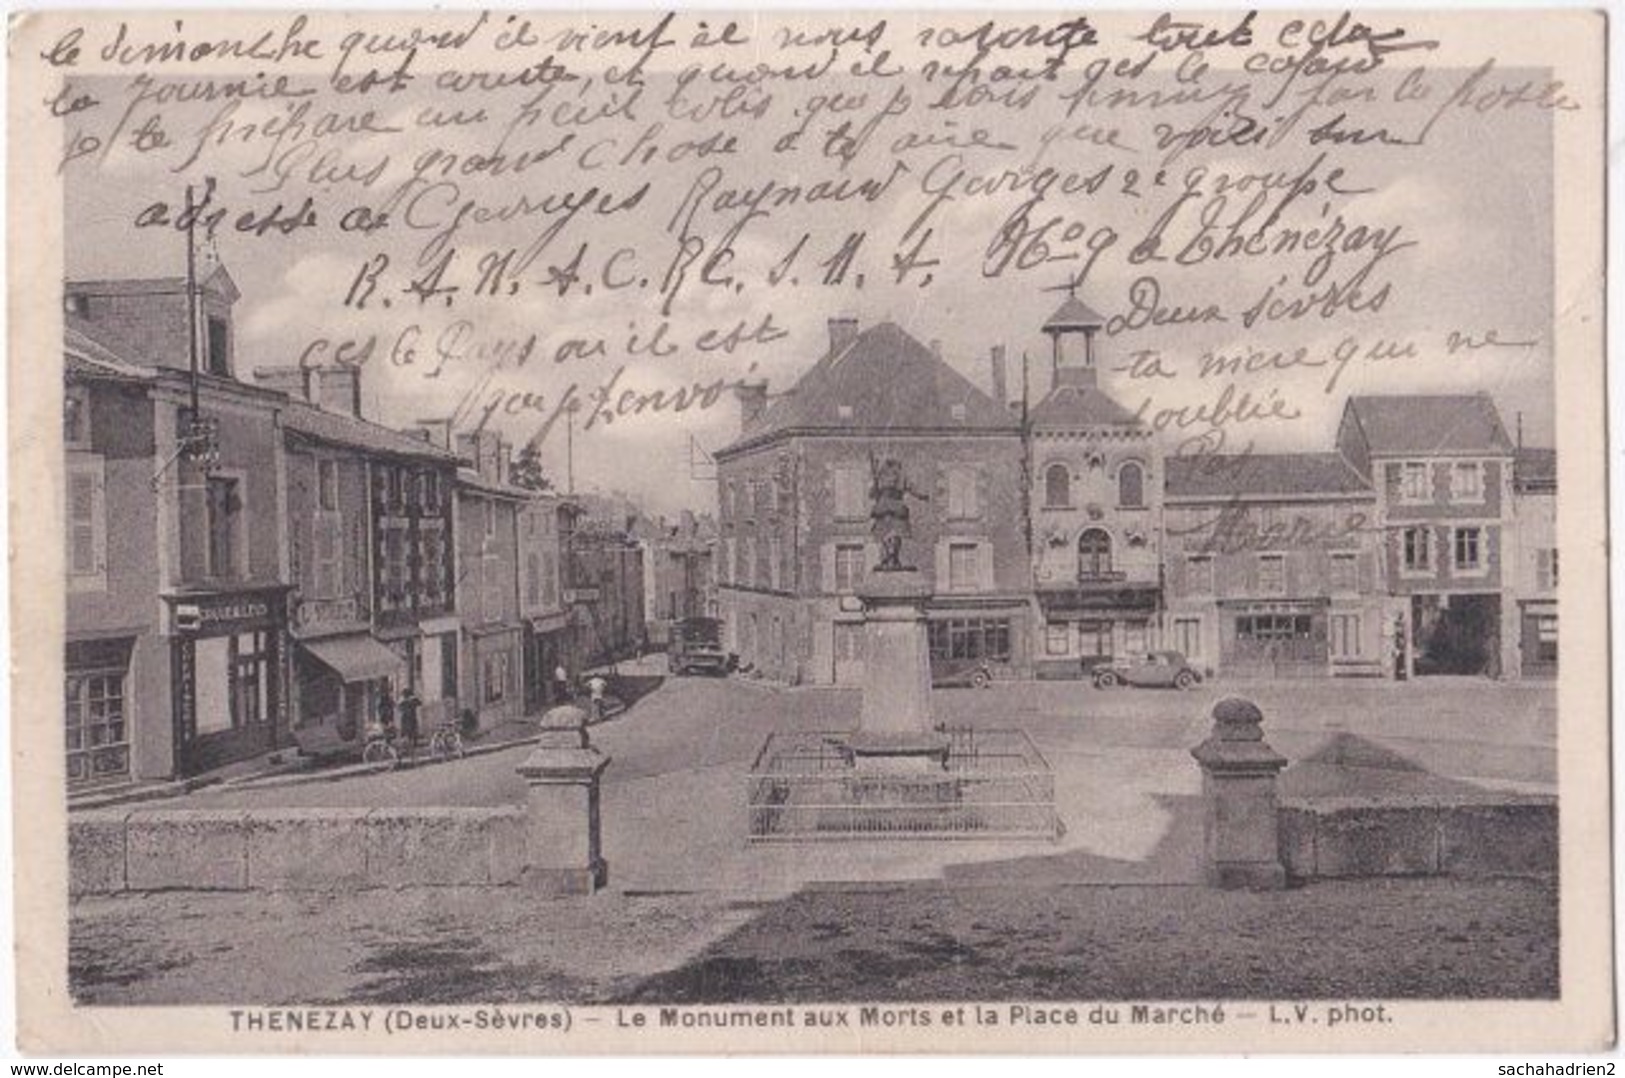 le dimanche quand il vient il nous raconte tout cela
la journie est courte, et quand il repart ges le cafard
p te prépare un petit colis que p vais envoyez par la poste
Plus grand chose a te dire que voici son
adresse de Georges Raynaud Georges 2e groupe
R. A. N. A. C. R C. S. N. A. No 9 a Thénézay
Deux Sèvres
ces le Pays ou il est
que p t'envoi
ta mere qui ne
t oublie
Pas
THENEZAY (Deux-Sèvres) — Le Monument aux Morts et la Place du Marché — L.V. phot.
www.delcampe.net
sachahadrien2